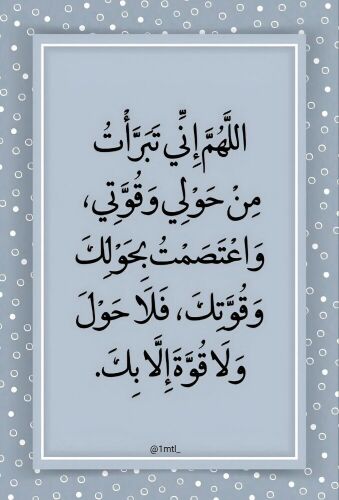 اللَّهُمَّ إِنِّي تَبَرَّأْتُ
مِنْ حَوْلِي وَقُوَّتِي،
وَاعْتَصَمْتُ بِحَوْلِكَ
وَقُوَّتِكَ، فَلَا حَوْلَ
وَلَا قُوَّةَ إِلَّا بِكَ.
@1mtl_